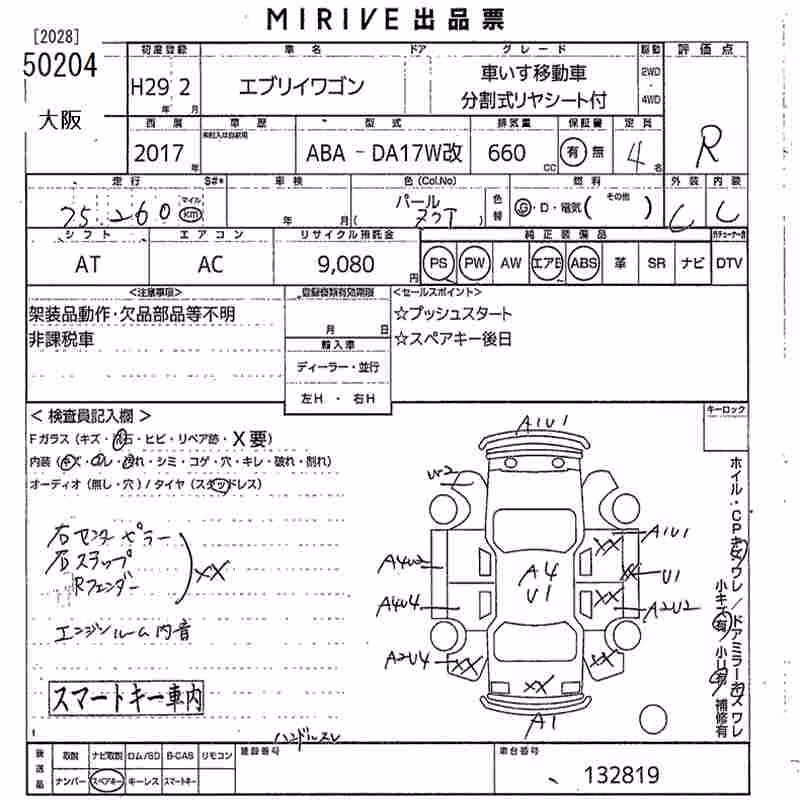 MIRIVE出品票
[2028]
50204
大阪
初度登録 車名 ドア グレード 駆動 評価点
H29 2 年 月
エブリイワゴン
車いす移動車
分割式リヤシート付
2WD
・
4WD
R
西暦 車歴 型式 排気量 保証書 定員
2017 年
ABA - DA17W改
660 CC
有 無
4 名
走行 S#* 車検 色(Col.No) 色替 燃料 外装 内装
75,260 マイル km
年 月
パール
( Z7T )
G・D・電気( その他 )
C C
シフト エアコン リサイクル預託金 純正装備品
AT AC 9,080 円 PS PW AW エアB ABS 革 SR ナビ DTV
<注意事項> 登録書類有効期限 <セールスポイント>
架装品動作・欠品部品等不明
非課税車
月 日
輸入車
ディーラー・並行
左H ・ 右H
☆プッシュスタート
☆スペアキー後日
キーロック
<検査員記入欄>
Fガラス (キズ・飛石・ヒビ・リペア跡・X要)
内装 (キズ・汚レ・スれ・シミ・コゲ・穴・キレ・破れ・割れ)
オーディオ (無し・穴) / タイヤ (スタッドレス)
右センターピラー
右ステップ
Rフェンダー
XX
エンジンルーム内音
スマートキー車内
ハンドルスレ
A1U1
U2
A1U1
XX
A4U2
A4
U1
XX
U1
A4U4
XX
A2U2
A2U4
XX
XX
XX
A1
ホイル・CPキズワレ/ドアミラーキズワレ
小キズ有 小凹有 補修有
後送品 取説 ナビ取説 ロム/SD B-CAS リモコン
ナンバー スペアキー キーレス スマートキー
登録番号
車台番号
132819